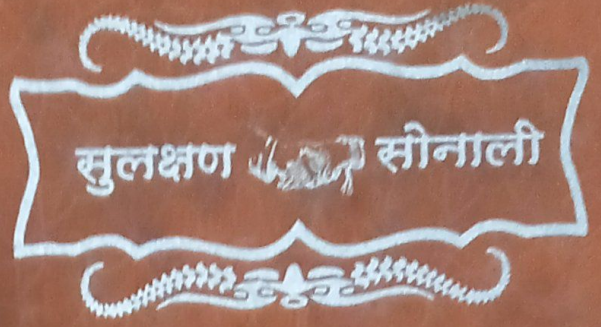 सुलक्षण सोनाली